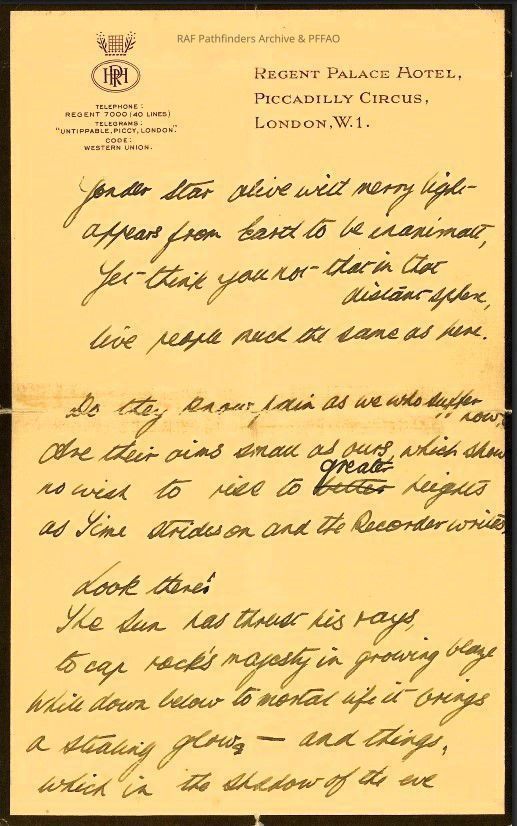 RAF Pathfinders Archive & PFFAO
RPH
TELEPHONE:
REGENT 7000 (40 LINES)
TELEGRAMS:
"UNTIPPABLE, PICCY, LONDON."
CODE:
WESTERN UNION.
REGENT PALACE HOTEL,
PICCADILLY CIRCUS,
LONDON, W.1.
Yonder star alive with merry light
appears from Earth to be inanimate,
Yet think you not that in that
distant sphere,
live people much the same as here.
Do they know pain as we who suffer
now
Are their aims small as ours, which show
no wish to rise to better heights
greater
as Time strides on and the Recorder writes
Look there!
The Sun has thrust his rays,
to cap rock's majesty in growing blaze
While down below to mortal life it brings
a stealing glow, — and things,
which in the shadow of the eve